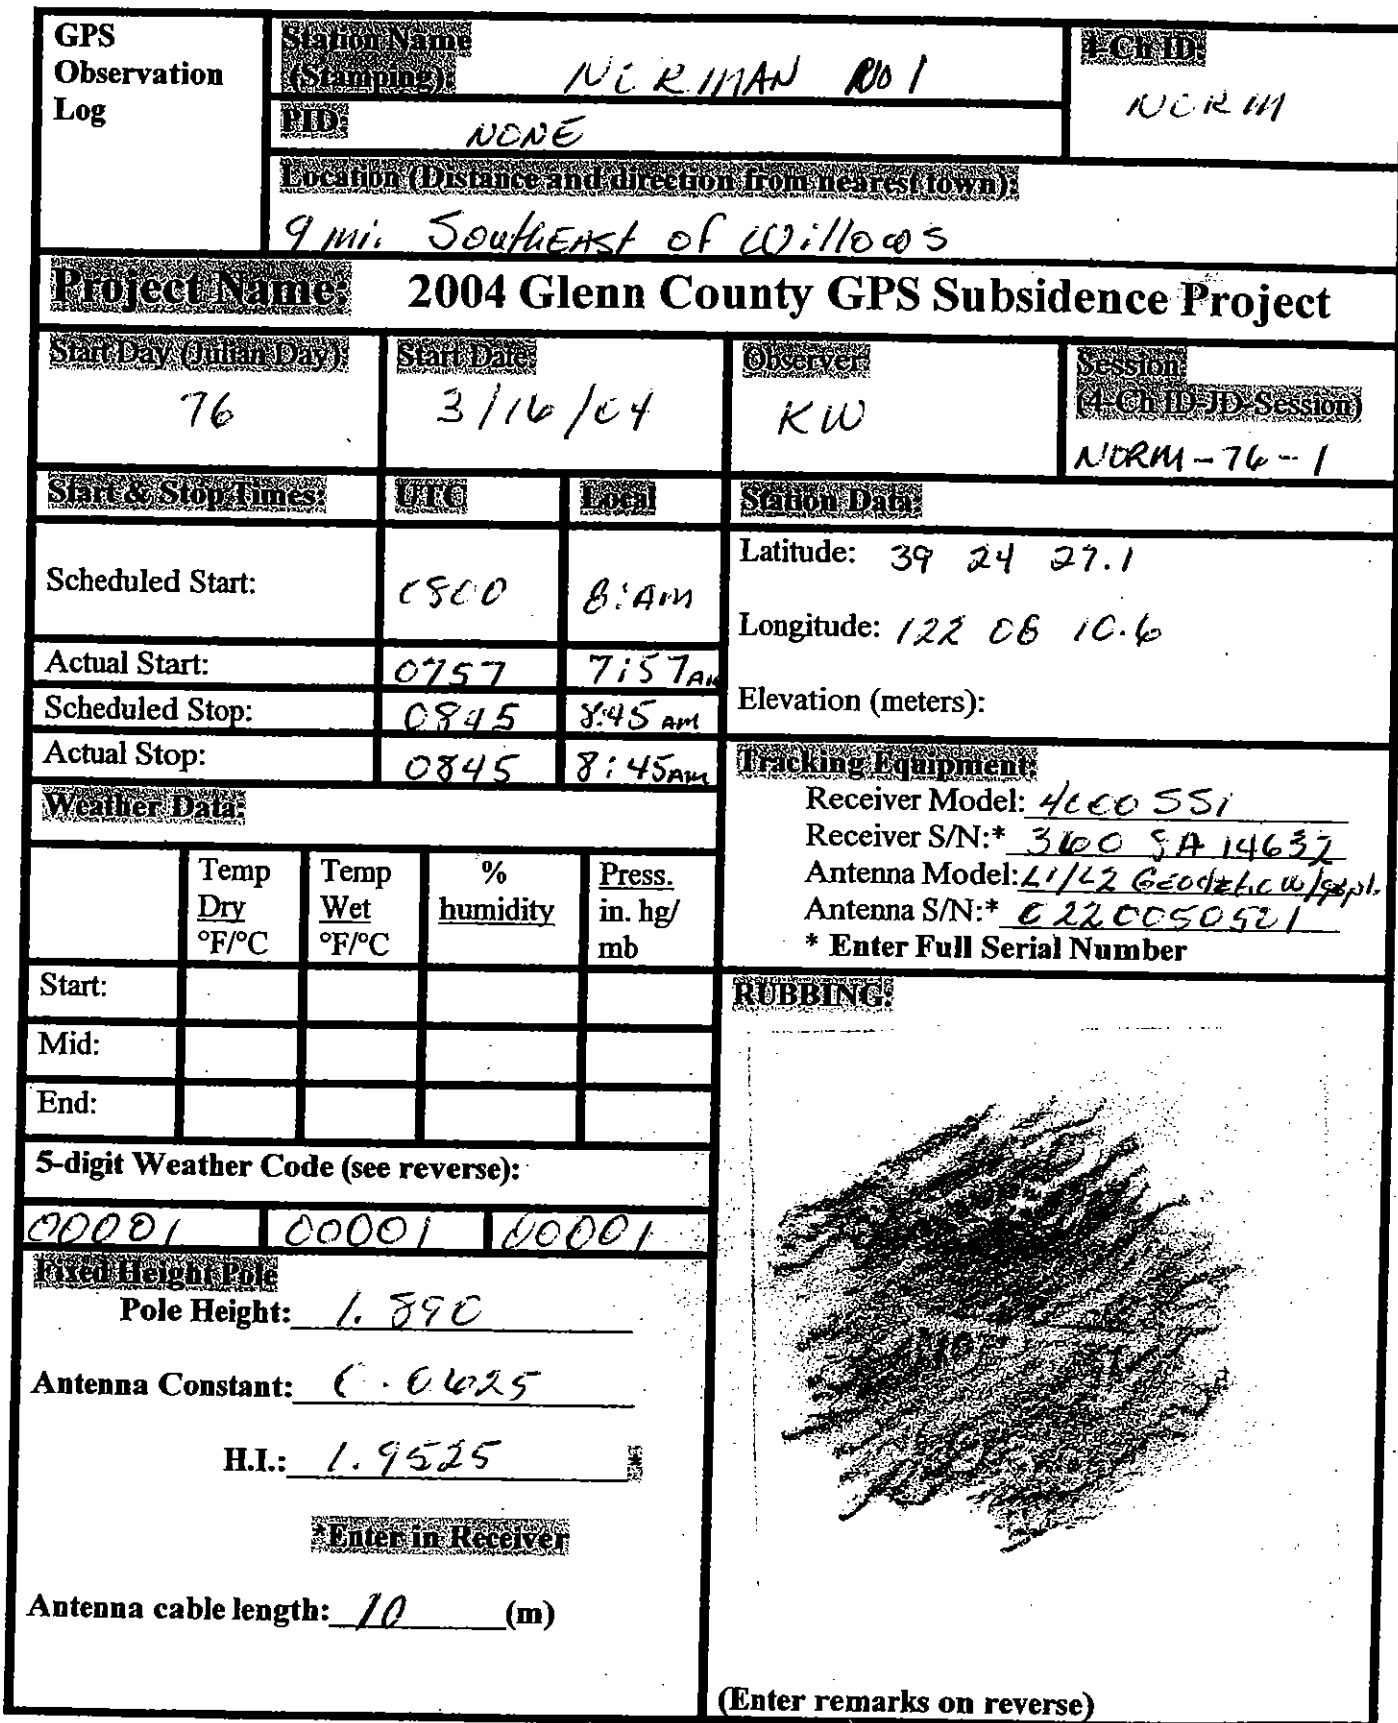 GPS
Observation
Log
Station Name
(Stamping): NORMAN NO 1
4-Ch ID:
NORM
PID: NONE
Location (Distance and direction from nearest town):
9 mi. SouthEAST of Willows
Project Name: 2004 Glenn County GPS Subsidence Project
Start Day (Julian Day):
76
Start Date:
3/16/04
Observer:
KW
Session:
(4-Ch ID-JD-Session)
NORM-76-1
Start & Stop Times: UTC Local
Scheduled Start: 0800 8:AM
Actual Start: 0757 7:57AM
Scheduled Stop: 0845 8:45 AM
Actual Stop: 0845 8:45AM
Station Data:
Latitude: 39 24 27.1
Longitude: 122 08 10.6
Elevation (meters):
Tracking Equipment:
Receiver Model: 4000 SSi
Receiver S/N:* 3640 A 14632
Antenna Model: L1/L2 Geodetic w/
Antenna S/N:*
* Enter Full Serial Number
Weather Data:
Temp
Dry
°F/°C
Temp
Wet
°F/°C
%
humidity
Press.
in. hg/
mb
Start:
Mid:
End:
5-digit Weather Code (see reverse):
00001 00001 00001
Fixed Height Pole
Pole Height: 1.890
Antenna Constant: 0.0625
H.I.: 1.9525 *
*Enter in Receiver
Antenna cable length: 10 (m)
RUBBING:
NO 1
(Enter remarks on reverse)